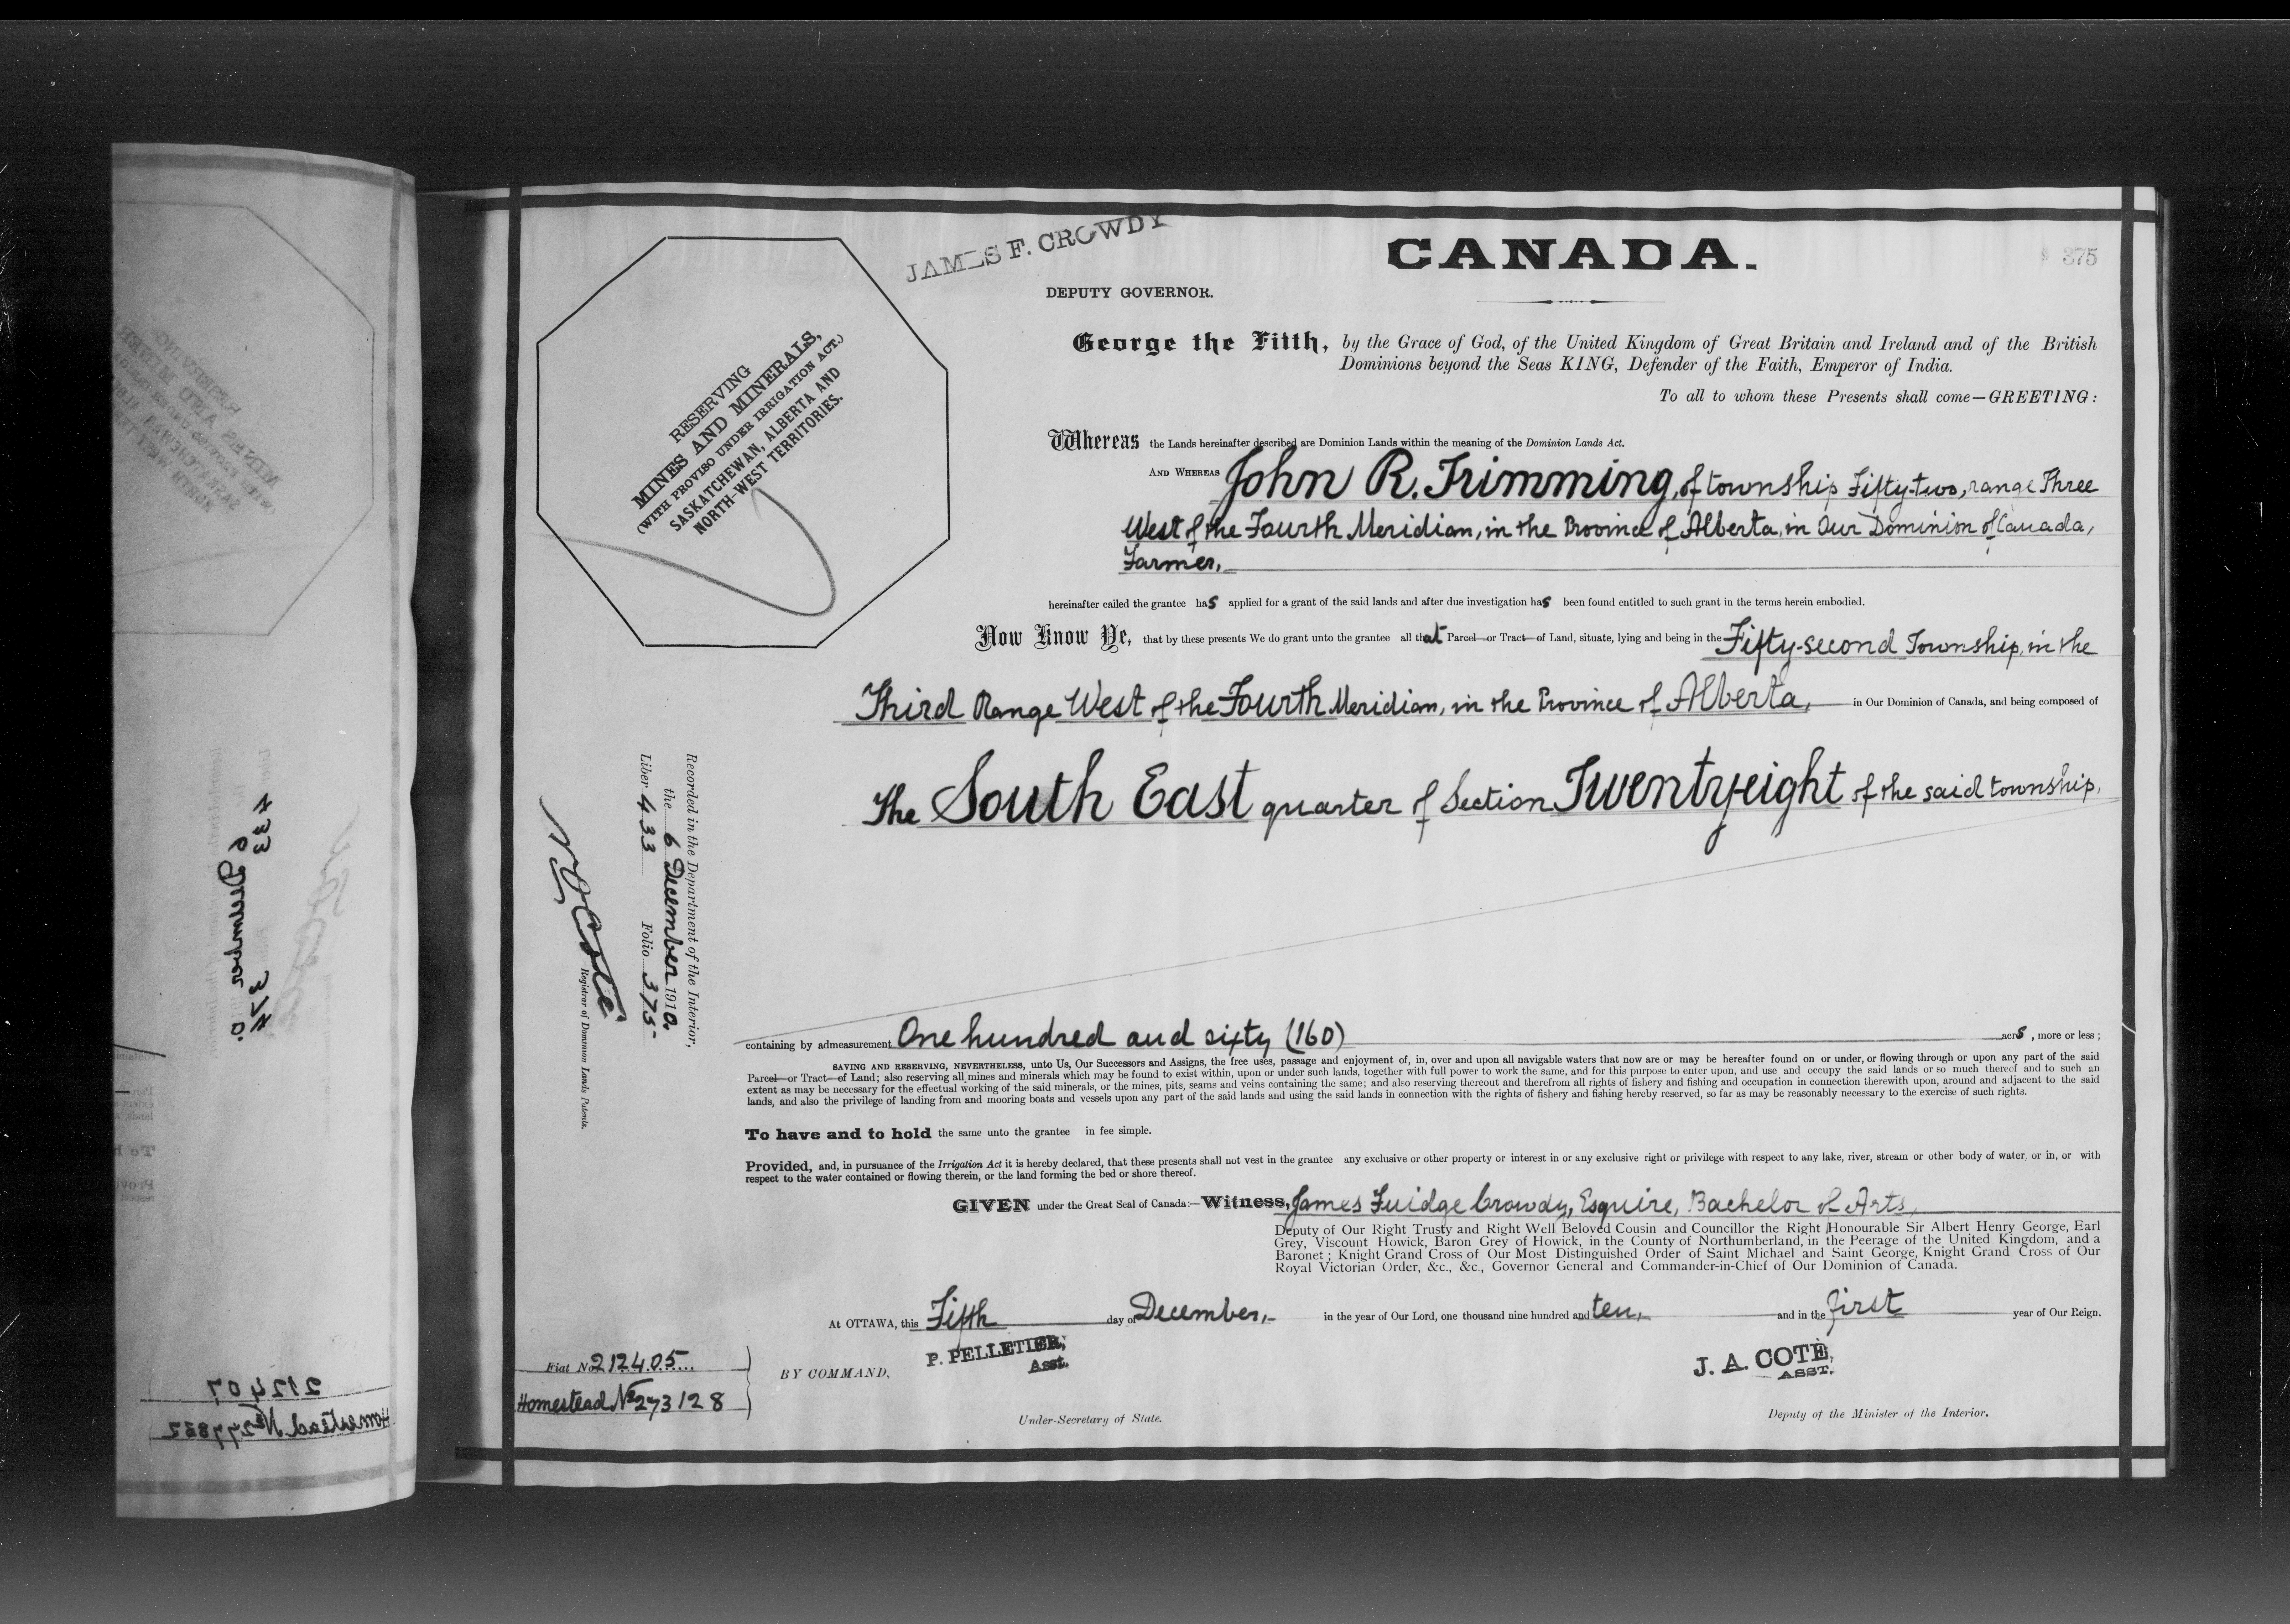 JAMES F. CROWDY
CANADA.
375
DEPUTY GOVERNOR.
George the Fifth, by the Grace of God, of the United Kingdom of Great Britain and Ireland and of the British
Dominions beyond the Seas KING, Defender of the Faith, Emperor of India.
To all to whom these Presents shall come—GREETING:
RESERVING
MINES AND MINERALS,
(WITH PROVISO UNDER IRRIGATION ACT.)
SASKATCHEWAN, ALBERTA AND
NORTH-WEST TERRITORIES.
Whereas the Lands hereinafter described are Dominion Lands within the meaning of the Dominion Lands Act.
AND WHEREAS John R. Trimming, of township Fifty-two, range Three
West of the Fourth Meridian, in the Province of Alberta, in Our Dominion of Canada,
Farmer,
hereinafter called the grantee has applied for a grant of the said lands and after due investigation has been found entitled to such grant in the terms herein embodied.
Now Know Ye, that by these presents We do grant unto the grantee all that Parcel or Tract of Land, situate, lying and being in the Fifty-second Township, in the
Third Range West of the Fourth Meridian, in the Province of Alberta, in Our Dominion of Canada, and being composed of
The South East quarter of Section Twenty-eight of the said township,
Recorded in the Department of the Interior,
the 6 December 1910.
Liber 433 Folio 375
N O Coté
Registrar of Dominion Lands Patents.
containing by admeasurement One hundred and sixty (160) acrs, more or less;
SAVING AND RESERVING, NEVERTHELESS, unto Us, Our Successors and Assigns, the free uses, passage and enjoyment of, in, over and upon all navigable waters that now are or may be hereafter found on or under, or flowing through or upon any part of the said
Parcel or Tract of Land; also reserving all mines and minerals which may be found to exist within, upon or under such lands, together with full power to work the same, and for this purpose to enter upon, and use and occupy the said lands or so much thereof and to such an
extent as may be necessary for the effectual working of the said minerals, or the mines, pits, seams and veins containing the same; and also reserving thereout and therefrom all rights of fishery and fishing and occupation in connection therewith upon, around and adjacent to the said
lands, and also the privilege of landing from and mooring boats and vessels upon any part of the said lands and using the said lands in connection with the rights of fishery and fishing hereby reserved, so far as may be reasonably necessary to the exercise of such rights.
To have and to hold the same unto the grantee in fee simple.
Provided, and, in pursuance of the Irrigation Act it is hereby declared, that these presents shall not vest in the grantee any exclusive or other property or interest in or any exclusive right or privilege with respect to any lake, river, stream or other body of water, or in, or with
respect to the water contained or flowing therein, or the land forming the bed or shore thereof.
GIVEN under the Great Seal of Canada:—Witness, James Fuidge Crowdy, Esquire, Bachelor of Arts,
Deputy of Our Right Trusty and Right Well Beloved Cousin and Councillor the Right Honourable Sir Albert Henry George, Earl
Grey, Viscount Howick, Baron Grey of Howick, in the County of Northumberland, in the Peerage of the United Kingdom, and a
Baronet; Knight Grand Cross of Our Most Distinguished Order of Saint Michael and Saint George, Knight Grand Cross of Our
Royal Victorian Order, &c., &c., Governor General and Commander-in-Chief of Our Dominion of Canada.
At OTTAWA, this Fifth day of December, in the year of Our Lord, one thousand nine hundred and ten, and in the first year of Our Reign.
Fiat No 212405
Homestead No 273128
BY COMMAND,
P. PELLETIER,
Asst.
Under-Secretary of State.
J. A. COTÉ,
ASST.
Deputy of the Minister of the Interior.